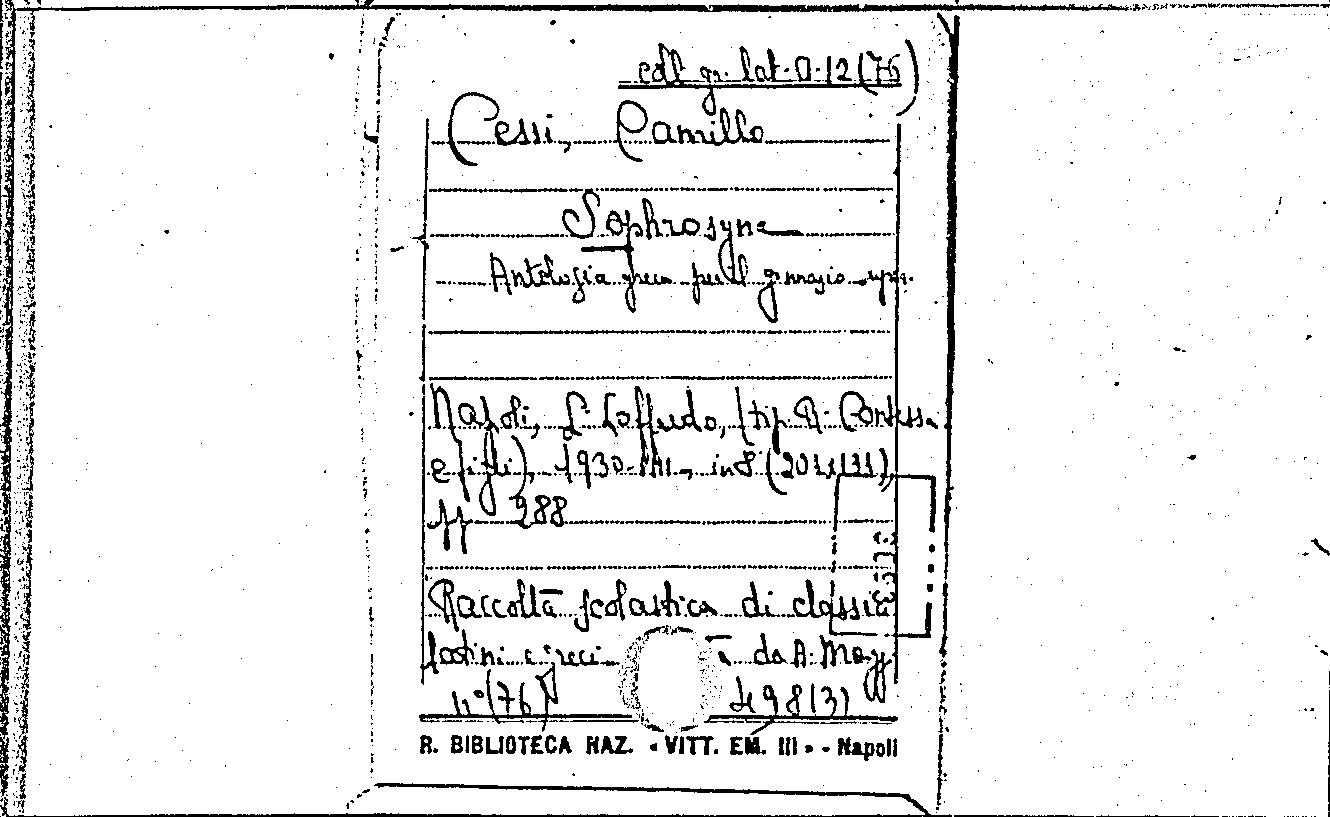 coll. gr. lat. D. 12 (76)
Cessi, Camillo
Sophrosyne
Antologia greca per il ginnasio sup.
Napoli, L. Loffredo, (tip. A. Contessa
e figli), 1930-VIII, in 8
pp 288
Raccolta scolastica di classici
latini e greci da A. Mazz
n° (76) 498131
R. BIBLIOTECA NAZ. «VITT. EM. III» - Napoli